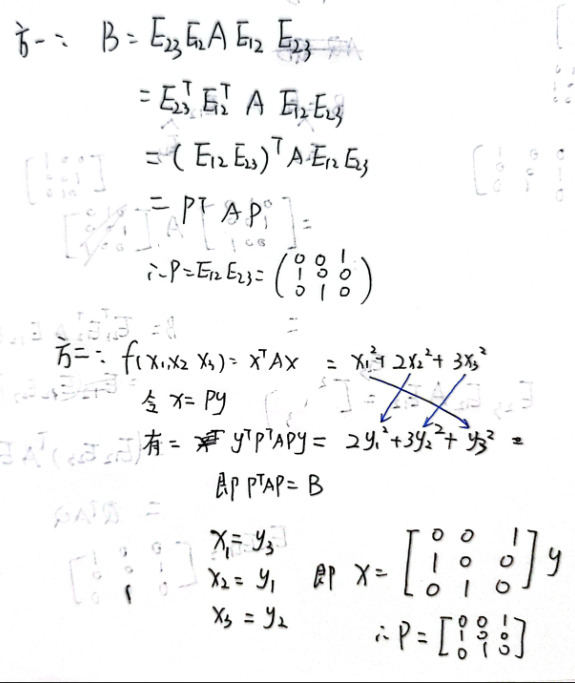 方一: B = E₂₃E₁₂AE₁₂E₂₃
= E₂₃ᵀE₁₂ᵀ A E₁₂E₂₃
= (E₁₂E₂₃)ᵀA·E₁₂E₂₃
= Pᵀ A P
∴P = E₁₂E₂₃ = (0 0 1
1 0 0
0 1 0)
方二: f(x₁,x₂ x₃) = xᵀAx = x₁² + 2x₂² + 3x₃²
令 x = Py
有 = yᵀPᵀAPy = 2y₁² + 3y₂² + y₃² =
即 PᵀAP = B
x₁ = y₃
x₂ = y₁
x₃ = y₂
即 X = [0 0 1
1 0 0
0 1 0] y
∴P = [0 0 1
1 0 0
0 1 0]